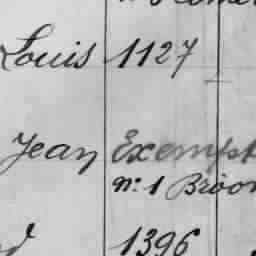 Louis 1127
Jean Exempt
n° 1 Broon
1396